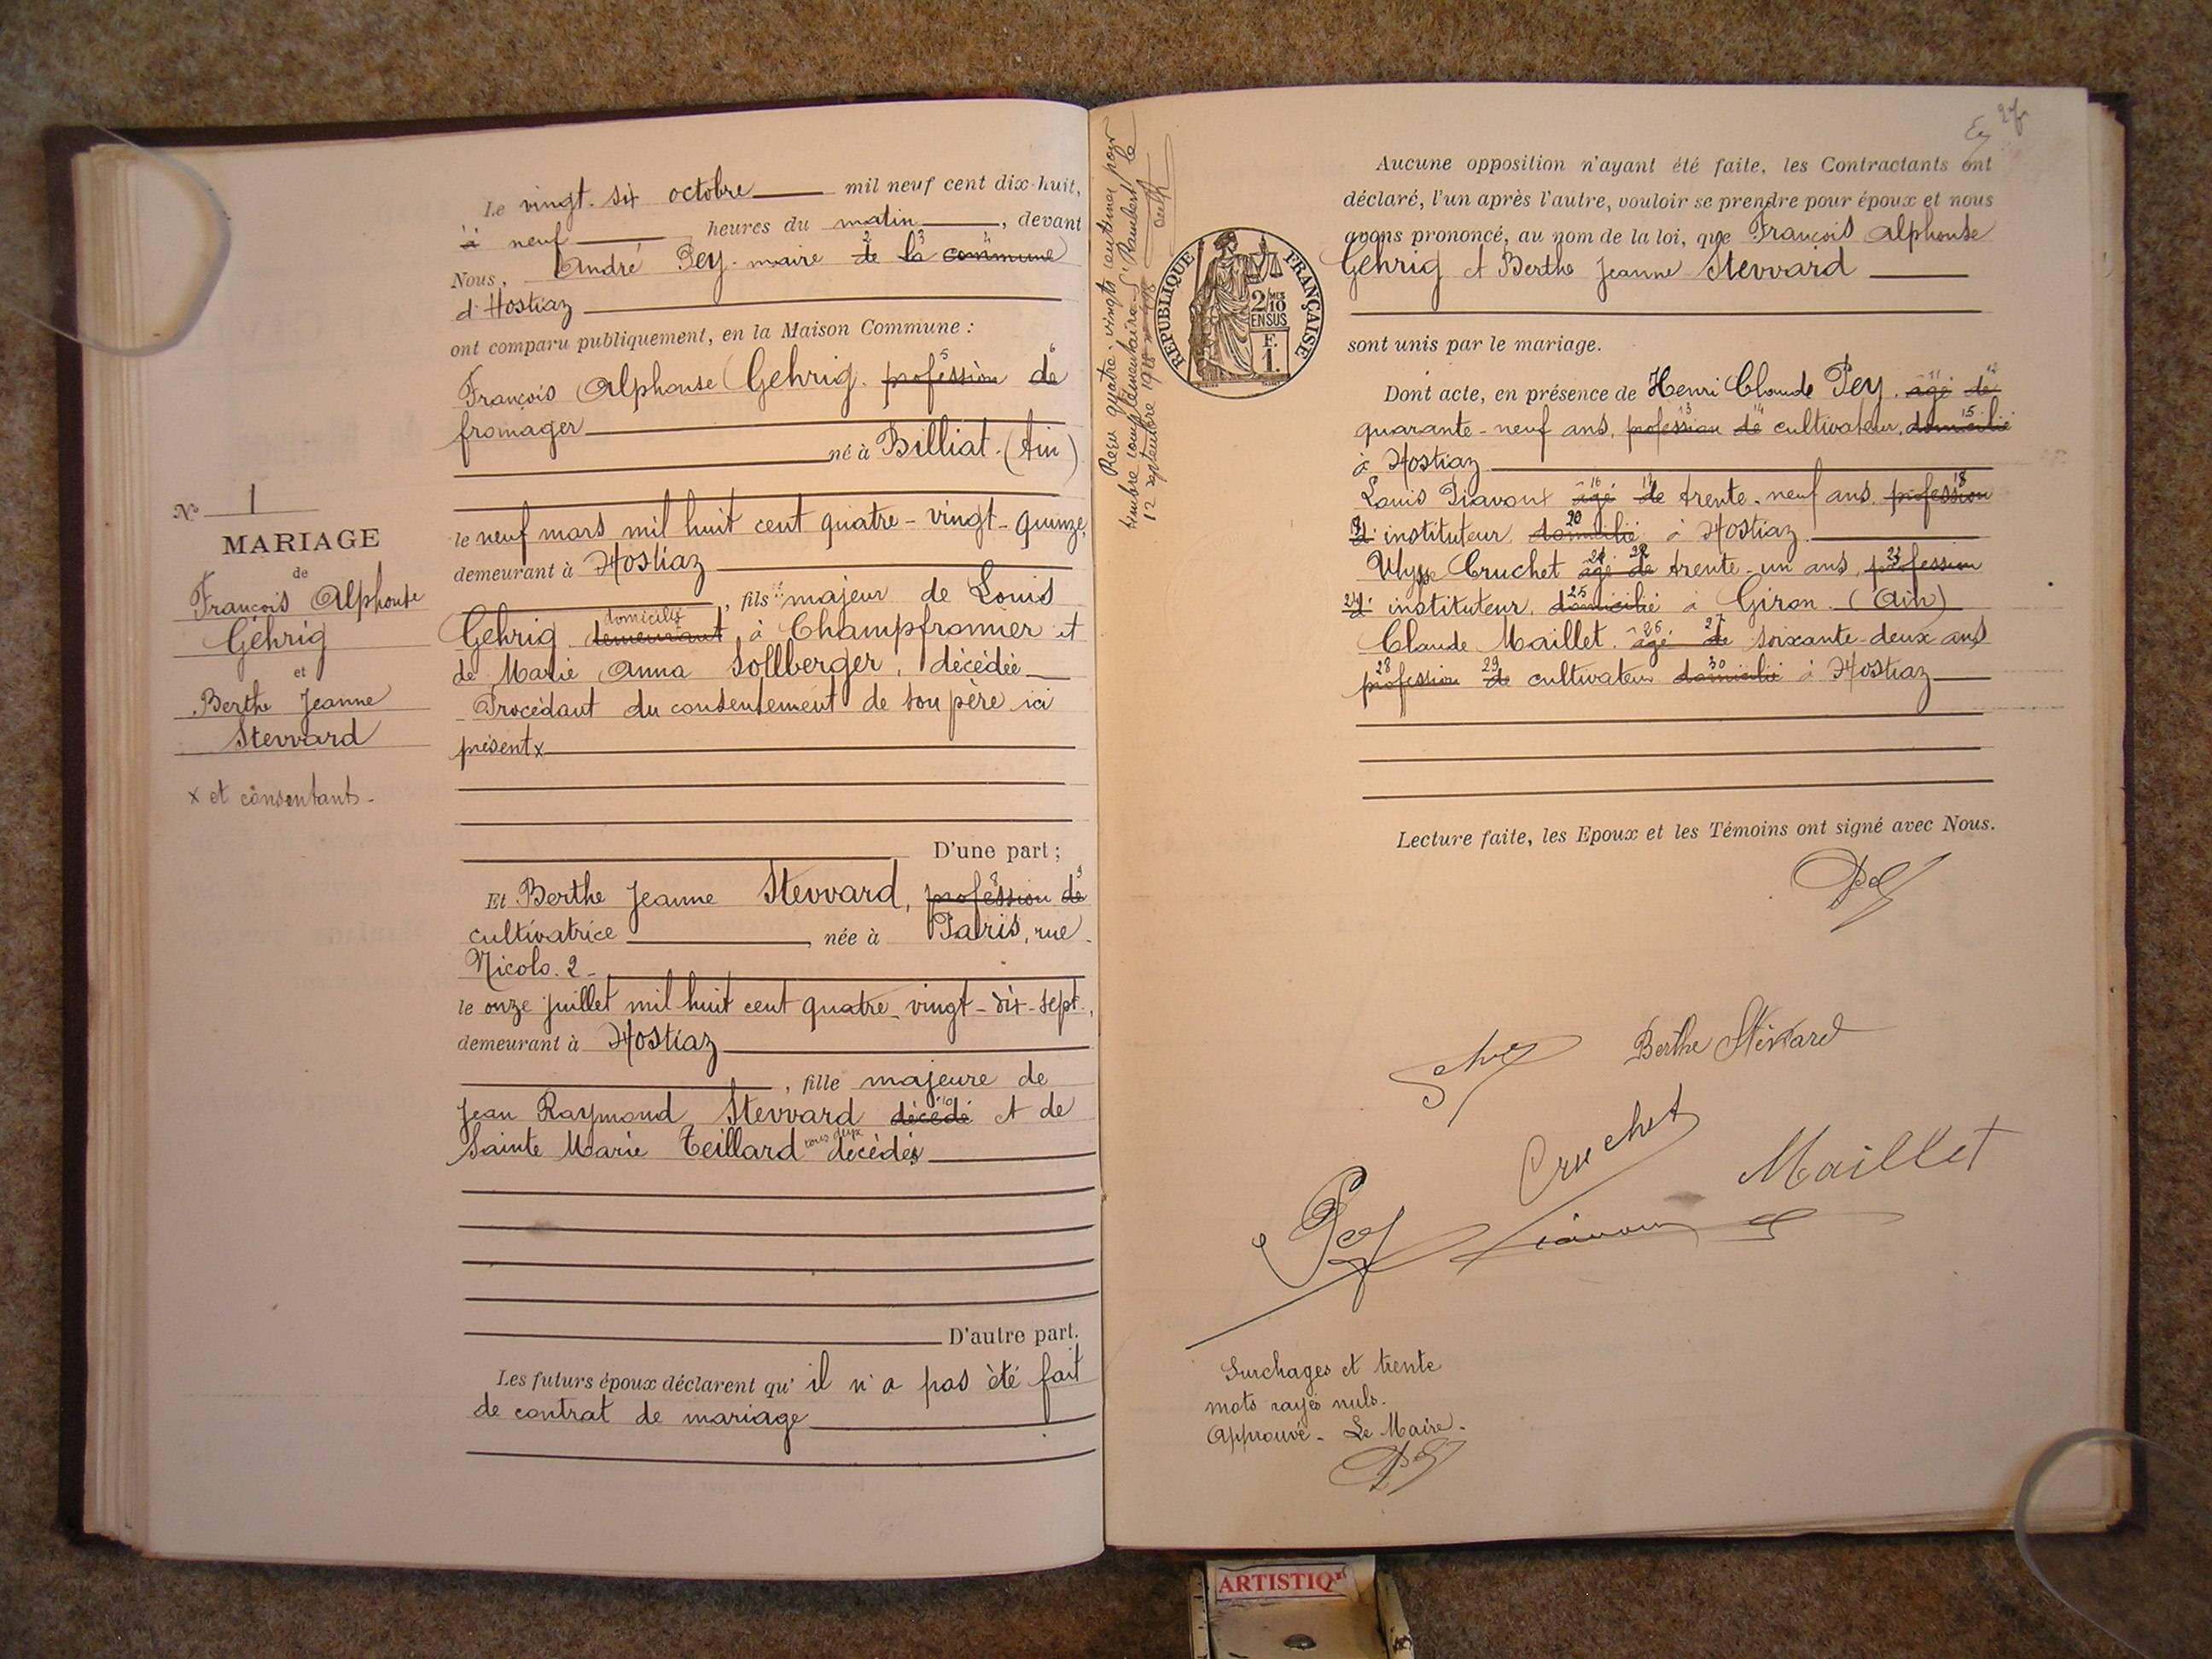 Le vingt-six octobre mil neuf cent dix-huit,
à neuf heures du matin, devant
Nous, André Pey maire de la commune
d'Hostiaz
ont comparu publiquement, en la Maison Commune :
François Alphonse Gehrig. profession de
fromager
né à Billiat. (Ain)
le neuf mars mil huit cent quatre-vingt-quinze,
demeurant à Hostiaz
, fils majeur de Louis
domicilié
Gehrig demeurant à Champfromier et
de Marie Anna Sollberger, décédée
Procédant du consentement de son père ici
présent x
D'une part ;
Et Berthe Jeanne Stevvard, profession de
cultivatrice, née à Paris, rue
Nicolo. 2-
le onze juillet mil huit cent quatre-vingt-dix-sept,
demeurant à Hostiaz
, fille majeure de
Jean Raymond Stevvard décédé et de
Sainte Marie Teillard tous deux décédés
D'autre part.
Les futurs époux déclarent qu'il n'a pas été fait
de contrat de mariage
N° 1
MARIAGE
de
François Alphonse
Gehrig
et
Berthe Jeanne
Stevvard
x et consentant-
Reçu quatre-vingts centimes pour
timbre complémentaire
12 septembre 1918
RÉPUBLIQUE FRANÇAISE
2/10 MES
EN SUS
F.
1.
Aucune opposition n'ayant été faite, les Contractants ont
déclaré, l'un après l'autre, vouloir se prendre pour époux et nous
avons prononcé, au nom de la loi, que François Alphonse
Gehrig et Berthe Jeanne Stevvard
sont unis par le mariage.
Dont acte, en présence de Henri Claude Pey. âgé de
quarante-neuf ans, profession de cultivateur, domicilié
à Hostiaz
Louis Piavoux âgé de trente-neuf ans, profession
d'instituteur, domicilié à Hostiaz.
Ulysse Cruchet âgé de trente-un ans, profession
d'instituteur, domicilié à Giron. (Ain)
Claude Maillet. âgé de soixante-deux ans
profession de cultivateur domicilié à Hostiaz
Lecture faite, les Epoux et les Témoins ont signé avec Nous.
Pey
Berthe Stévard
Cruchet
Maillet
Pey
Piavoux
Surchages et trente
mots rayés nuls.
Approuvé - Le Maire-
Pey
ARTISTIQ